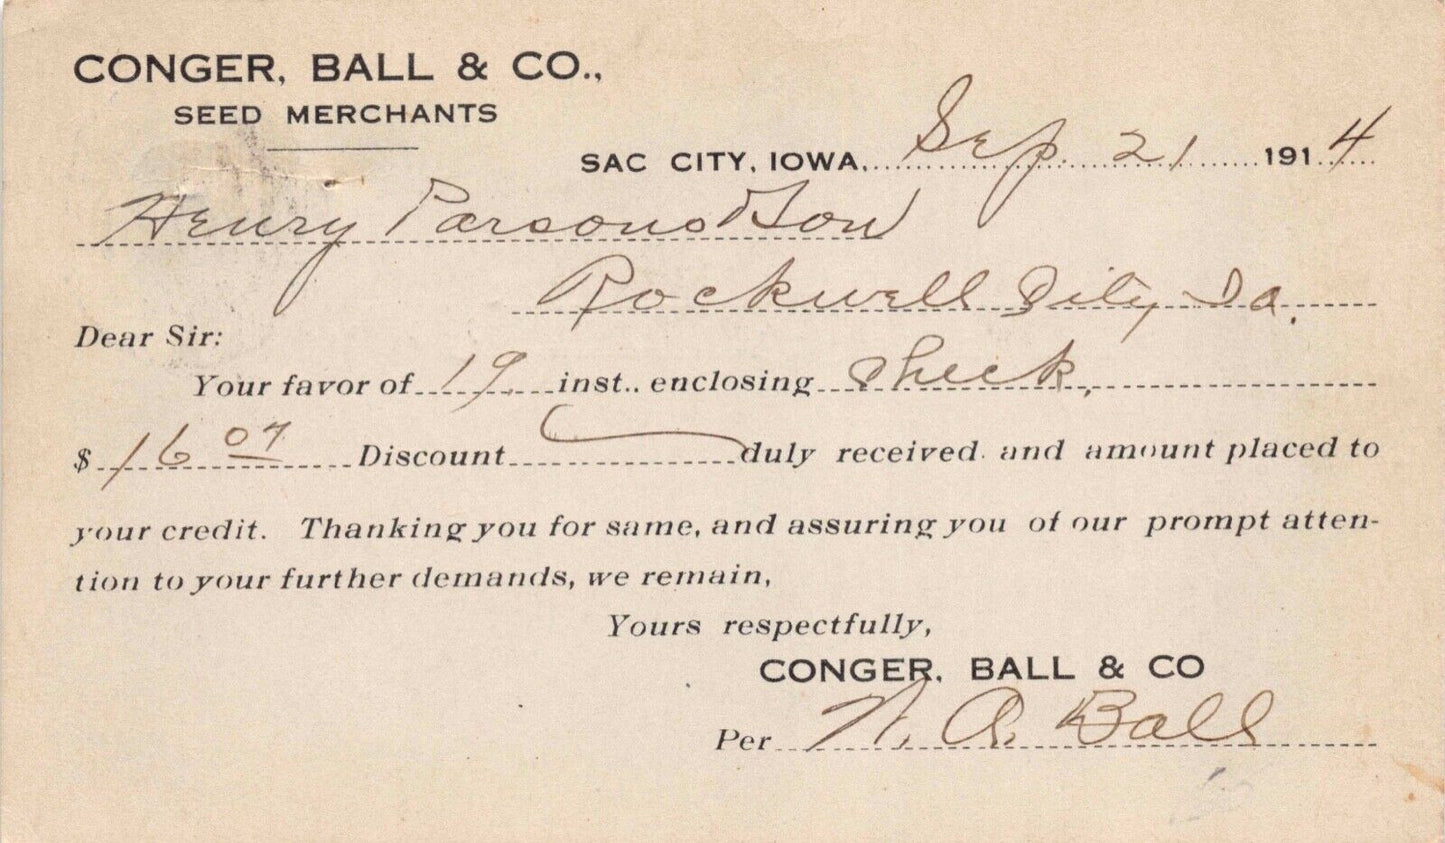 CONGER, BALL & CO.,
SEED MERCHANTS
SAC CITY, IOWA, Sep. 21 1914
Henry Parsons & Son
Rockwell City, Ia.
Dear Sir:
Your favor of 19 inst., enclosing check,
$ 16 07 Discount duly received and amount placed to
your credit. Thanking you for same, and assuring you of our prompt atten-
tion to your further demands, we remain,
Yours respectfully,
CONGER, BALL & CO
Per A. Ball